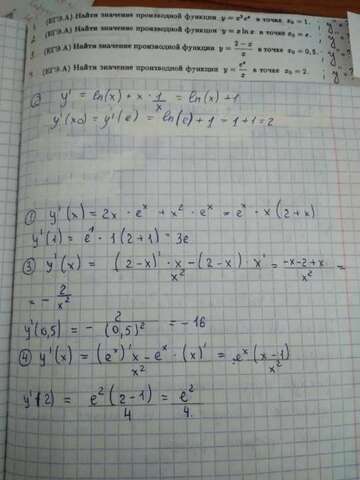 (ЕГЭ.А) Найти значение производной функции y = x²eˣ в точке x₀ = 1.
(ЕГЭ.А) Найти значение производной функции y = x ln x в точке x₀ = e.
3. (ЕГЭ.А) Найти значение производной функции y = (2 − x)/x в точке x₀ = 0,5.
(ЕГЭ.А) Найти значение производной функции y = eˣ/x в точке x₀ = 2.
② y' = ln(x) + x · 1/x = ln(x) + 1
y'(x₀) = y'(e) = ln(e) + 1 = 1 + 1 = 2
① y'(x) = 2x · eˣ + x² · eˣ = eˣ · x(2+x)
y'(1) = e¹ · 1(2+1) = 3e
③ y'(x) = ((2−x)' · x − (2−x) · x')/x² = (−x−2+x)/x² =
= − 2/x²
y'(0,5) = − 2/(0,5)² = −16
④ y'(x) = ((eˣ)'x − eˣ · (x)')/x² = eˣ(x−1)/x²
y'(2) = e²(2−1)/4 = e²/4